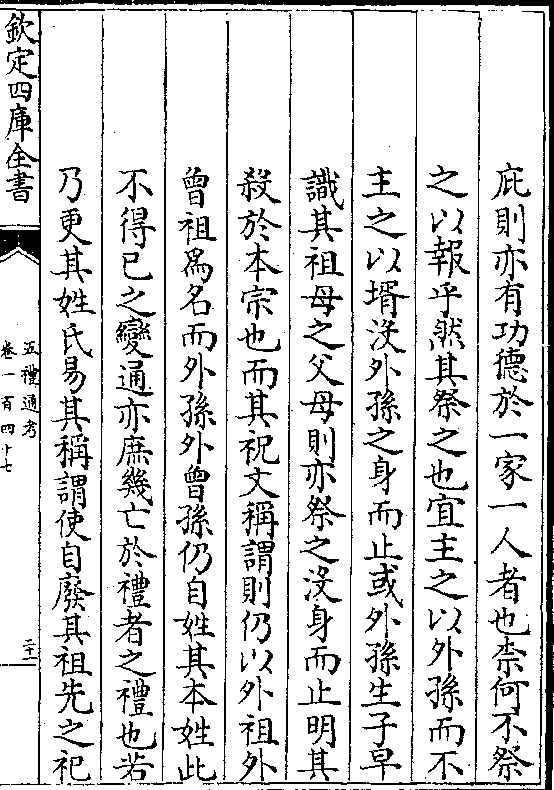 庇則亦有功德於一家一人者也柰何不祭
之以報乎然其祭之也宜主之以外孫而不
主之以壻没外孫之身而止或外孫生子早
識其祖母之父母則亦祭之没身而止明其
殺於本宗也而其祝文稱謂則仍以外祖外
曾祖爲名而外孫外曾孫仍自姓其本姓此
不得已之變通亦庶幾亡於禮者之禮也若
乃更其姓氏易其稱謂使自廢其祖先之祀
欽定四庫全書
五禮通考
卷一百四十七
二十一